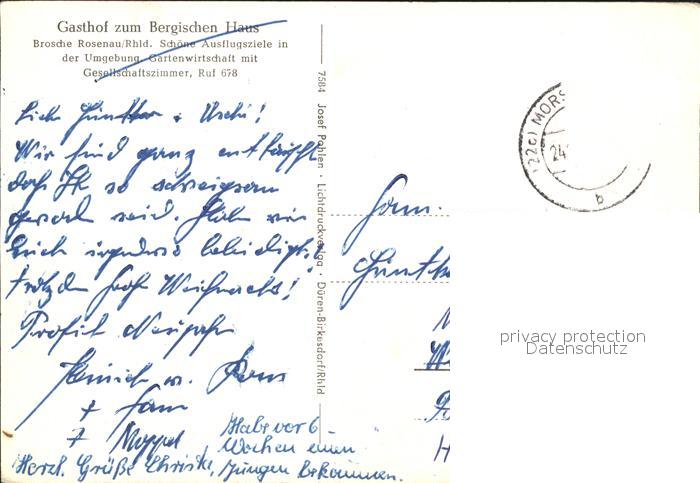 Gasthof zum Bergischen Haus
Brosche Rosenau/Rhld. Schöne Ausflugsziele in
der Umgebung. Gartenwirtschaft mit
Gesellschaftszimmer, Ruf 678
Liebe Günther + Uschi!
Wir sind ganz enttäuscht
daß Ihr so schweigsam
geworden seid. Haben wir
Euch irgendwo beleidigt?
trotzdem frohe Weihnacht!
Prosit Neujahr
Heinrich u.
+ Fam
Moppel
Habe vor 6
Wochen einen
Jungen bekommen.
Herzl. Grüße Christel,
7584 Josef Pahlen · Lichtdruckverlag · Düren-Birkesdorf/Rhld
(22c) MORS
24
b
Fam.
Günth
privacy protection
Datenschutz